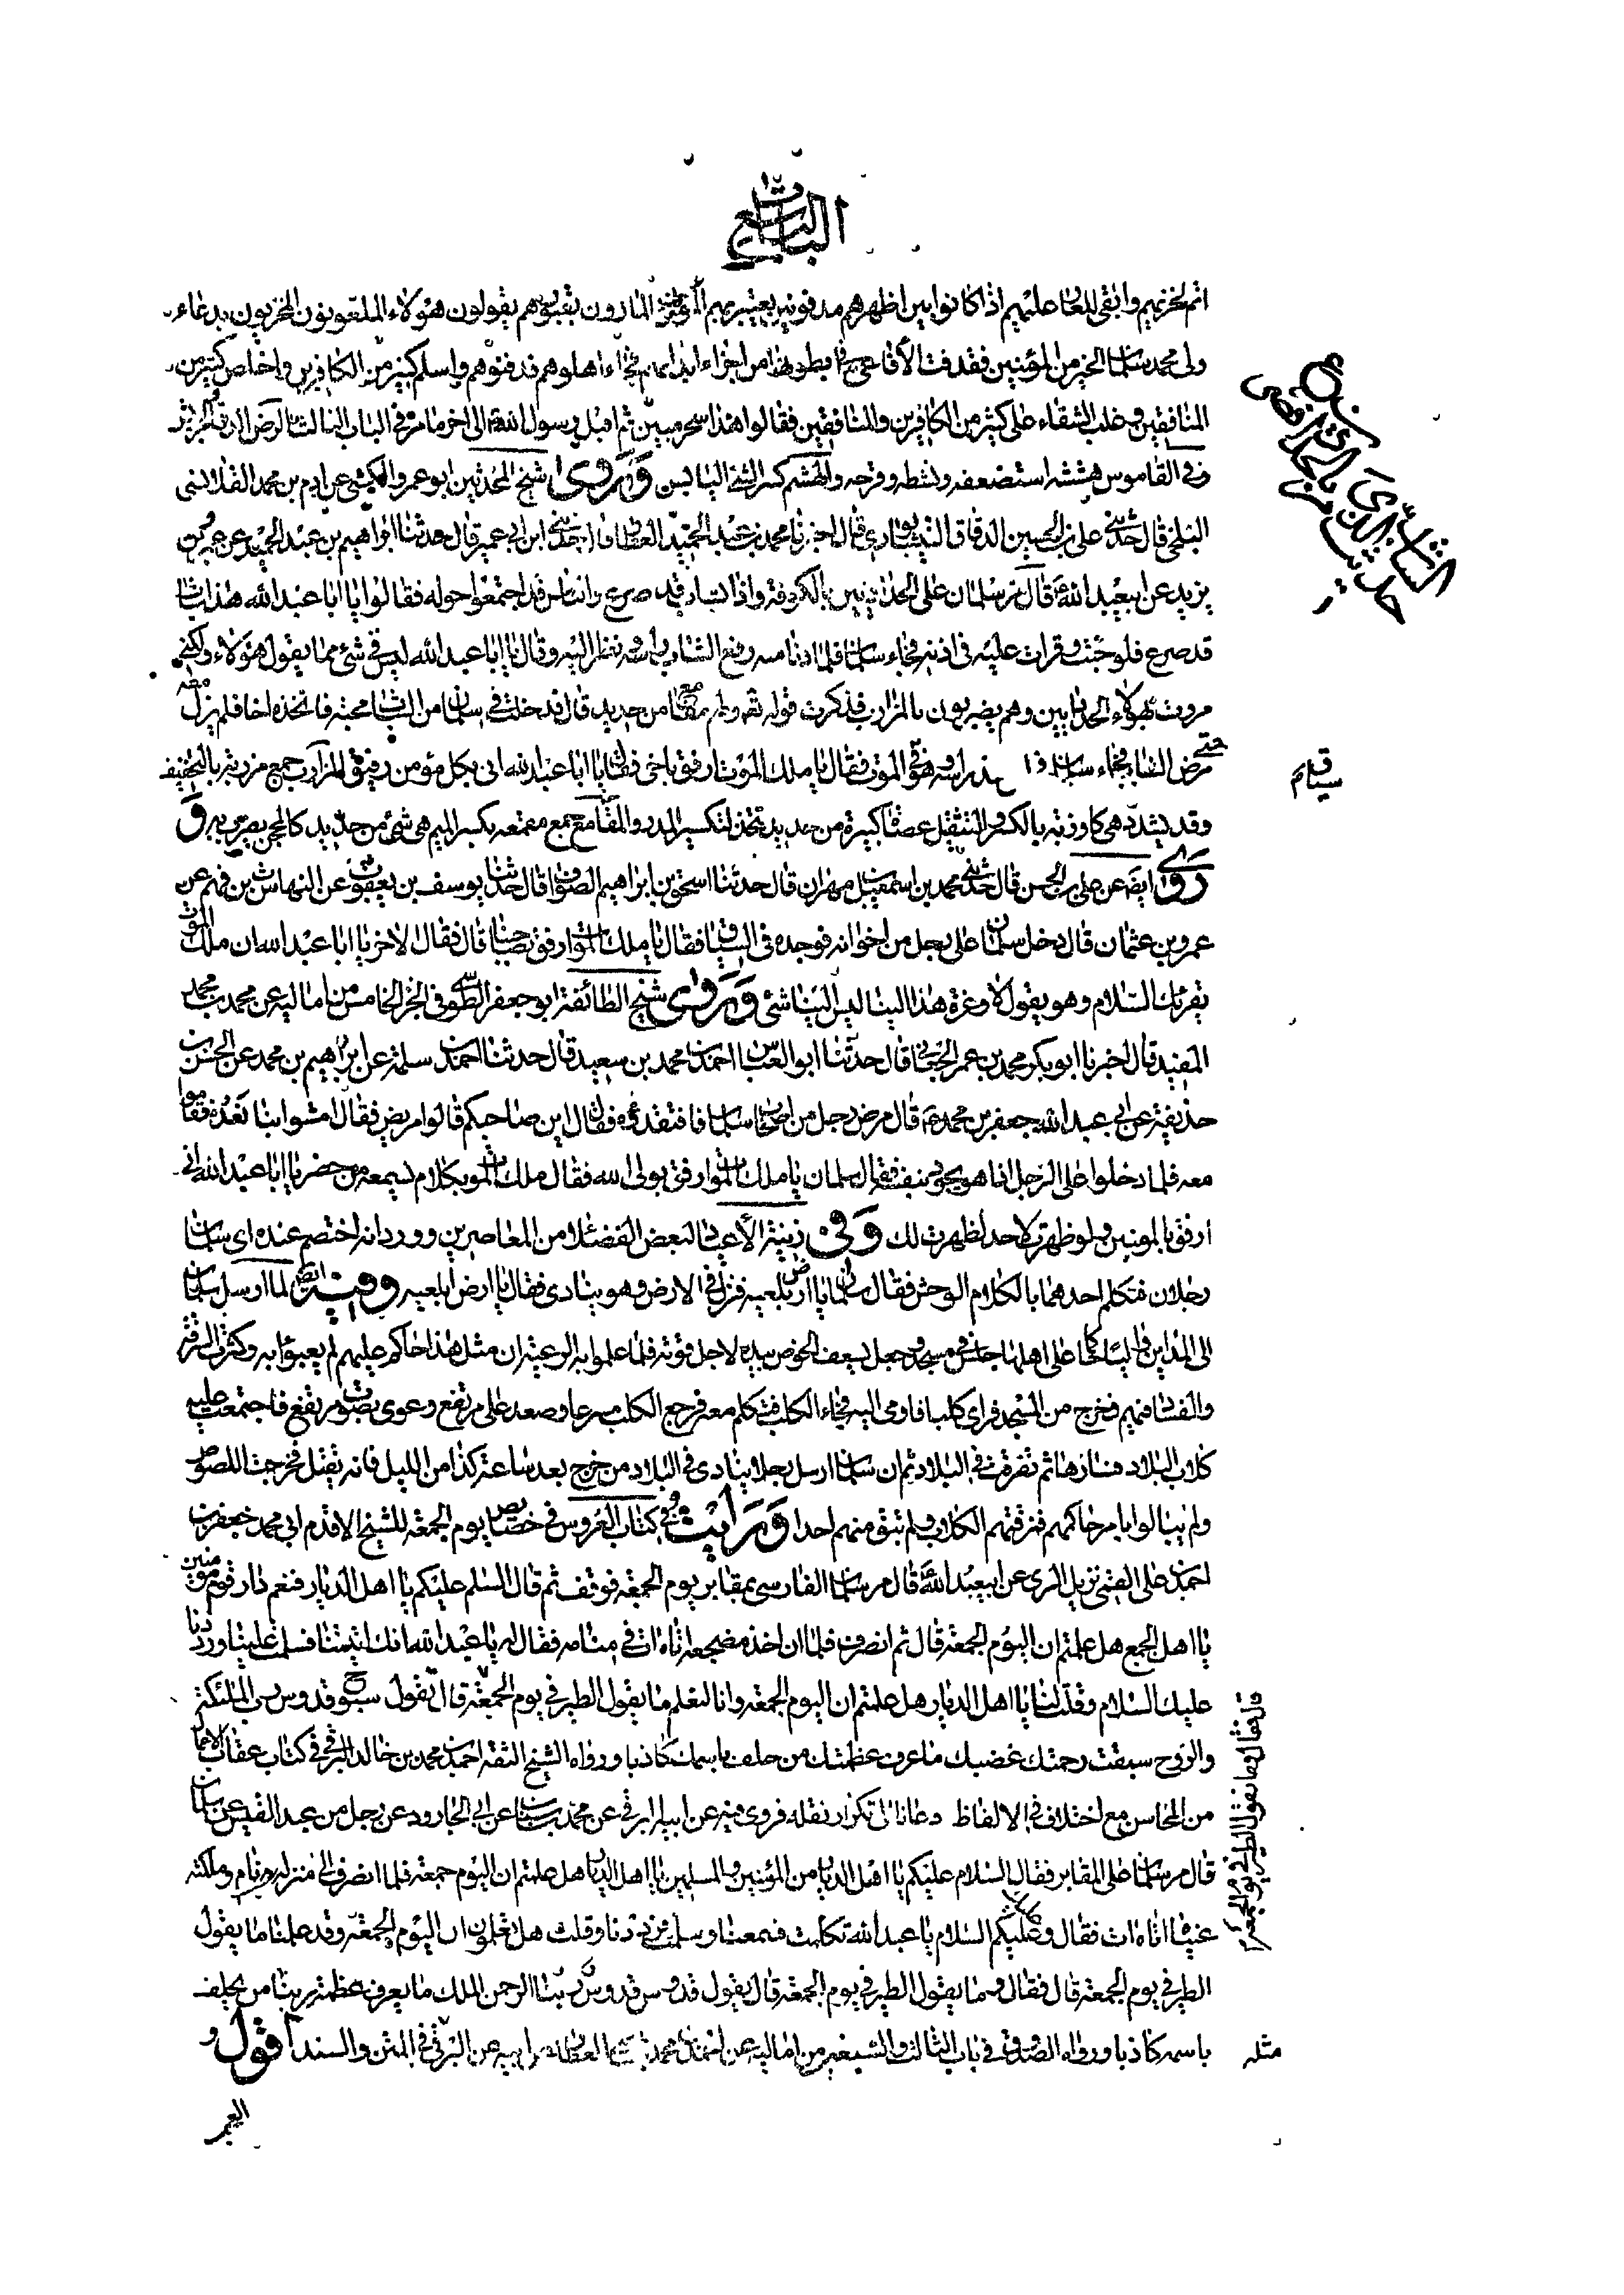 الباب السابع
اتم لخزيهم وابقى للعار عليهم اذا كانوا بين اظهرهم مدفونين يعتبر بهم المؤمنون المارون بقبورهم يقولون هؤلاء الملعونون المخزيون بدعاء
ولى محمد سلمان الخير من المؤمنين فقذفت الأفاعي ما فى بطونها من اجزاء ابدانهم فجاء اهلوهم فدفنوهم واسلم كثير من الكافرين واخلص كثير من
المنافقين وغلب الشقاء على كثير من الكافرين والمنافقين فقالوا هذا سحر مبين ثم اقبل رسول الله الى اخر ما مر فى الباب الثالث
وفى القاموس هششه استضعفه ونشطه وفرحه والهشم كسر الشئ اليابس وروى شيخ المحدثين ابو عمرو الكشى عن ادم بن محمد القلانسى
البلخى قال حدثنى على بن الحسين الدقاق النيسابورى قال اخبرنا محمد بن عبد الحميد العطار قال حدثنى ابن ابى عمير قال حدثنا ابراهيم بن عبد الحميد عن عمر بن
يزيد عن ابيعبد الله قال مر سلمان على الحدادين بالكوفة واذا شاب قد صرع والناس قد اجتمعوا حوله فقالوا يا ابا عبد الله هذا الشاب
قد صرع فلو جئت وقرات عليه فى اذنه فجاء سلمان فلما دنا منه رفع الشاب راسه ونظر اليه وقال يا ابا عبد الله ليس فى شئ مما يقول هؤلاء ولكنى
مررت بهؤلاء الحدادين وهم يضربون بالمرازب فذكرت قوله تعه ولهم مقامع من حديد قال فدخلت فى سلمان من الشاب محبة فاتخذه اخا فلم يزل معه
حتى مرض الشاب فجاء سلمان عند راسه وهو فى الموت فقال يا ملك الموت ارفق باخى فقال يا ابا عبد الله انى بكل مؤمن رفيق المرازب جمع مرزبة بالتخفيف
وقد يشدد هى كارزبة بالكسر والتثقيل عصا كبيرة من حديد تتخذ لتكسير المدر والمقامع جمع مقمعه بكسر الميم هى شئ من حديد كالمحجن يضرب به و
روى ايضا عن على بن الحسن قال حدثنى محمد بن اسمعيل بن مهران قال حدثنا اسحق بن ابراهيم الصواف قال حدثنا يوسف بن يعقوب عن النهاش بن فهم عن
عمرو بن عثمان قال دخل سلمان على رجل من اخوانه فوجده فى السياق فقال يا ملك الموت ارفق بصاحبنا قال فقال الاخر يا ابا عبد الله ان ملك الموت
يقرئك السلام وهو يقول لا وعزة هذا البناء ليس الينا شئ وروى شيخ الطائفة ابو جعفر الطوسى فى الجزء الخامس من اماليه عن محمد بن محمد
المفيد قال اخبرنا ابو بكر محمد بن عمر الجعابى قال حدثنا ابو العباس احمد بن محمد بن سعيد قال حدثنا احمد بن سلمة عن ابراهيم بن محمد عن الحسن بن
حذيفة عن ابى عبد الله جعفر بن محمد قال مرض رجل من اصحاب سلمان فافتقده فقال اين صاحبكم قالوا مريض فقال امشوا بنا نعوده فقاموا
معه فلما دخلوا على الرجل اذا هو يجود بنفسه فقال سلمان يا ملك الموت ارفق بولى الله فقال ملك الموت بكلام يسمعه من حضر يا ابا عبد الله انى
ارفق بالمؤمنين ولو ظهرت لاحد لظهرت لك وفى زينة الأعياد لبعض الفضلاء من المعاصرين وورد انه اختصم عنده اى سلمان
رجلان فتكلم احدهما بالكلام الوحش فقال سلمان يا ارض ابلعيه فنزل فى الارض وهو ينادى فقال يا ارض ابلعيه وفيه ايضا لما ارسل سلمان
الى المداين واليا حاكما على اهلها جلس فى مسجد وجعل يسعف الخوص بيده لاجل قوته فلما علموا به الرعية ان مثل هذا حاكم عليهم لم يعبؤا به وكثر السرقة
والفساد فيهم فخرج من المسجد فراى كلبا فاومى اليه فجاء الكلب فتكلم معه فرجع الكلب مسرعا وصعد على مرتفع وعوى بصوت مرتفع فاجتمعت عليه
كلاب البلاد فسارها ثم تفرقت فى البلاد ثم ان سلمان ارسل رجلا ينادى فى البلاد من خرج بعد ساعة كذا من الليل فانه يقتل فخرجت اللصوص
ولم يبالوا بامر حاكمهم فمزقتهم الكلاب ولم تبق منهم احدا ورايت فى كتاب العروس فى خصايص يوم الجمعة للشيخ الاقدم ابى محمد جعفر بن
احمد بن على القمى نزيل الرى عن ابيعبد الله قال مر سلمان الفارسى بمقابر يوم الجمعة فوقف ثم قال السلم عليكم يا اهل الديار فنعم دار قوم مؤمنين
يا اهل الجمع هل علمتم ان اليوم الجمعة قال ثم انصرف فلما ان اخذ مضجعه اتاه ات فى منامه فقال له يا عبد الله انك اتيتنا فسلمت علينا ورددنا
عليك السلام وقلت لنا يا اهل الديار هل علمتم ان اليوم الجمعة وانا لنعلم ما يقول الطير فى يوم الجمعة قال يقول سبوح قدوس رب الملئكة
والروح سبقت رحمتك غضبك ما عرف عظمتك من حلف باسمك كاذبا ورواه الشيخ الثقة احمد بن محمد بن خالد البرقى فى كتاب عقاب الاعمال
من المحاسن مع اختلاف فى الالفاظ دعانا الى تكرار نقله فروى فيه عن ابيه البرقى عن محمد بن سنان عن ابى الجارود عن رجل من عبد القيس عن سلمان
قال مر سلمان على المقابر فقال السلام عليكم يا اهل الديار من المؤمنين والمسلمين يا اهل الديار هل علمتم ان اليوم جمعة فلما انصرف الى منزله ونام وملكته
عيناه اتاه ات فقال وعليكم السلام يا عبد الله تكلمت فسمعنا وسلمت فرددنا وقلت هل تعلمون ان اليوم الجمعة وقد علمنا ما يقول
الطير فى يوم الجمعة قال فقال وما يقول الطير فى يوم الجمعة قال يقول قدوس قدوس ربنا الرحمن الملك ما يعرف عظمة ربنا من يحلف
باسمه كاذبا ورواه الصدوق فى باب الثالث والسبعين من اماليه عن احمد بن محمد بن العطار عن ابيه عن البرقى فى المتن والسند اقول و
مثله
العمر